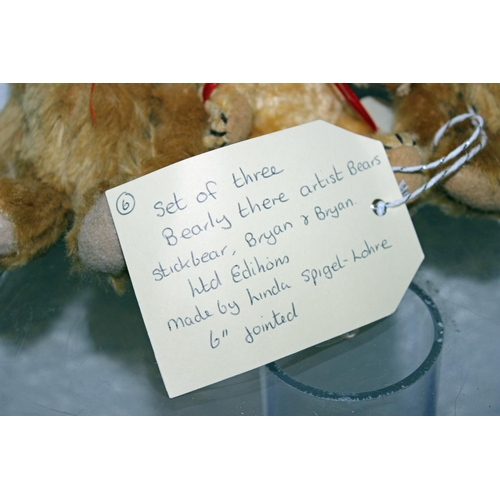 6 Set of three
Bearly there artist Bears
stickbear, Bryan & Bryan
Ltd Editions
Made by Linda Spigel-Lohre
6" Jointed